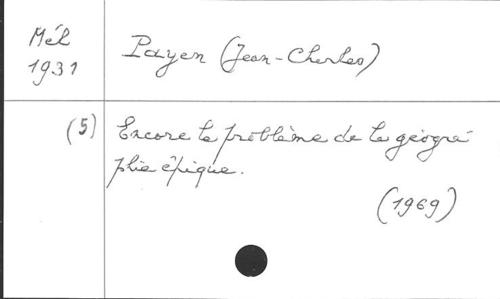 Mél
1931
Payen (Jean-Charles)
(5)
Encore le problème de la géogra-
phie épique.
(1969)